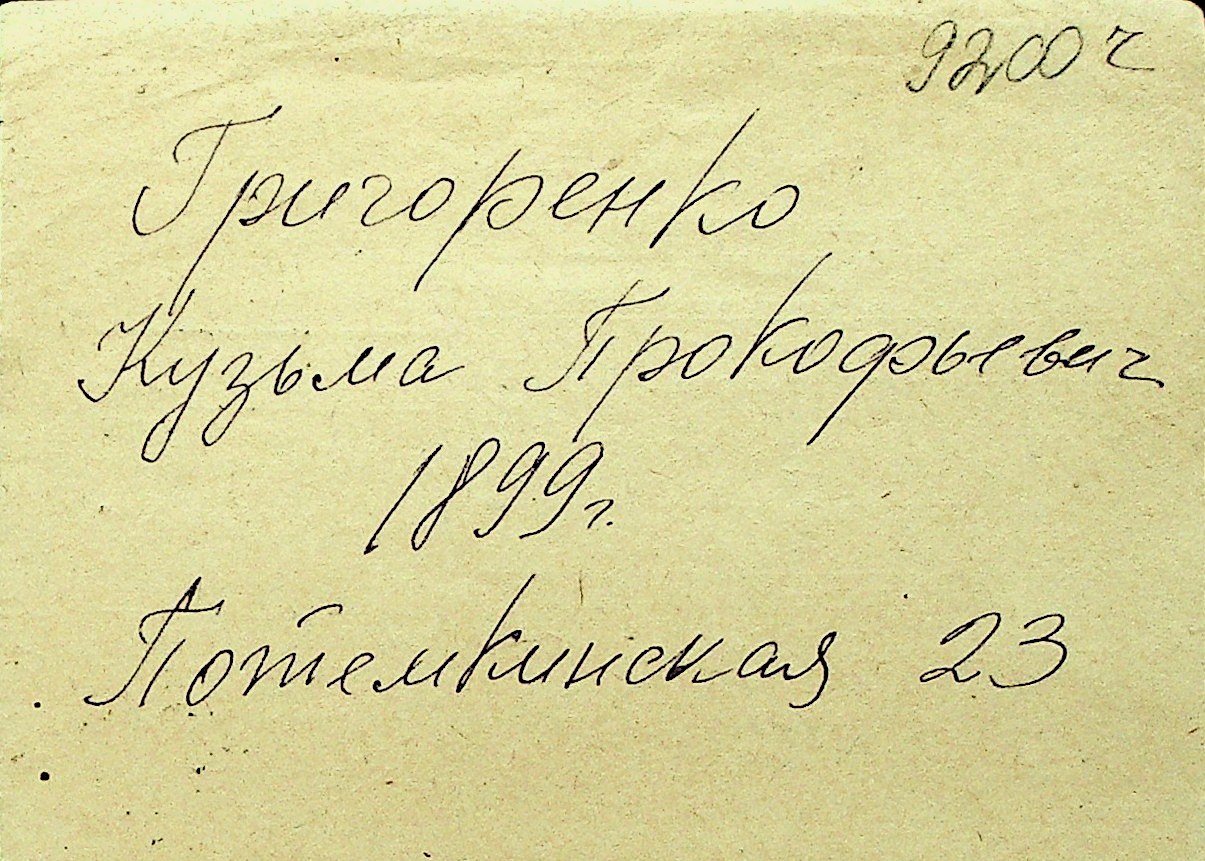 9200 г
Григоренко
Кузьма Прокофьевич
1899г.
Потемкинская 23